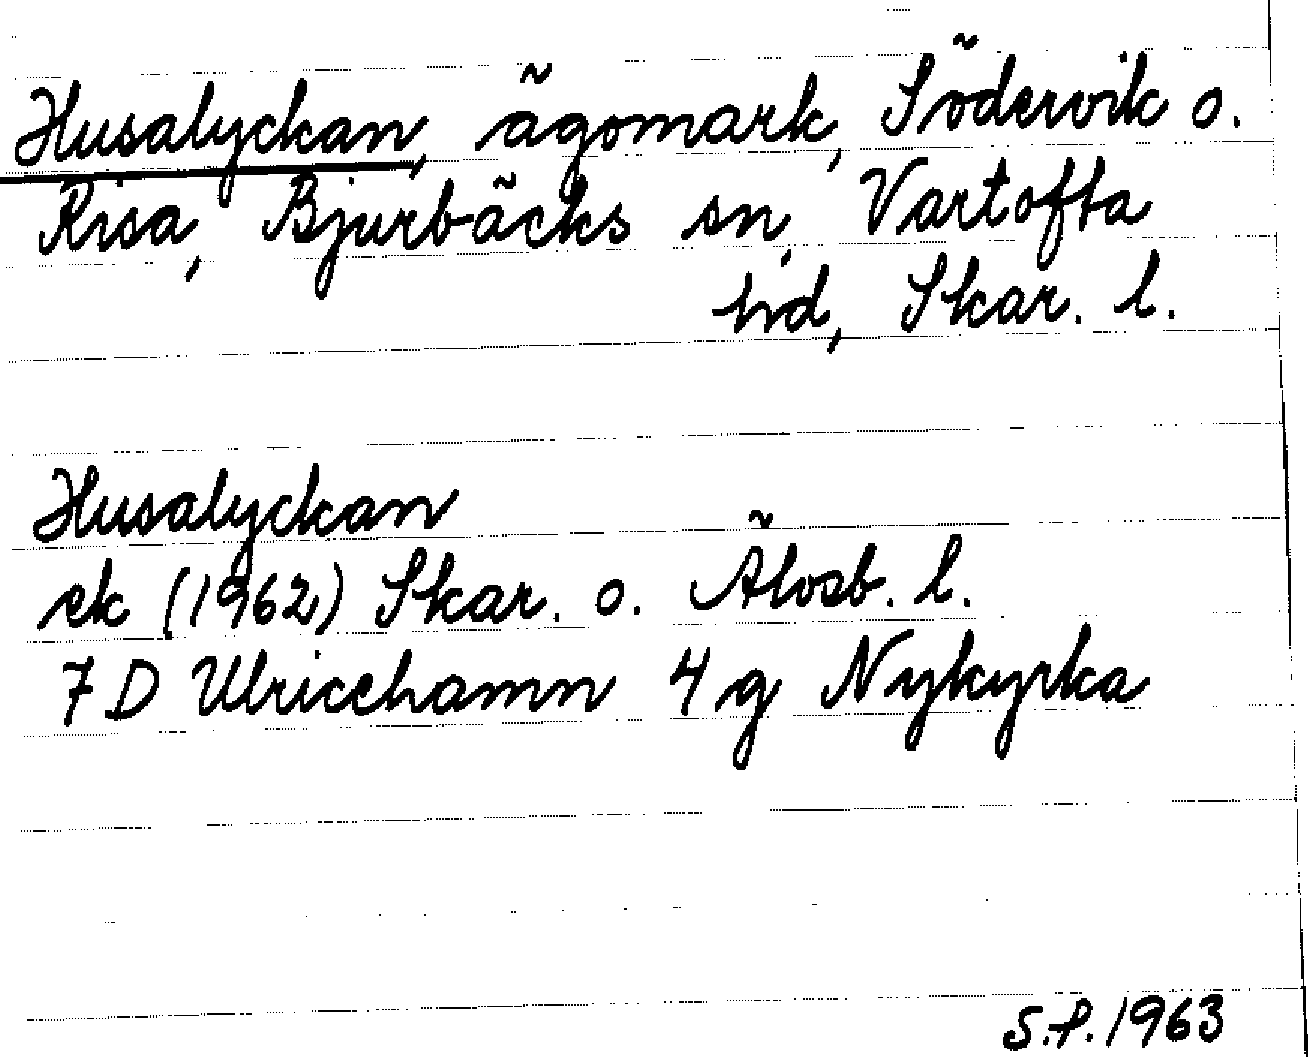 Husalyckan, ägomark, Södervik o.
Risa, Bjurbäcks sn, Vartofta
hd, Skar. l.
Husalyckan
ek (1962) Skar. o. Älvsb. l.
7 D Ulricehamn 4 g Nykyrka
S.P. 1963